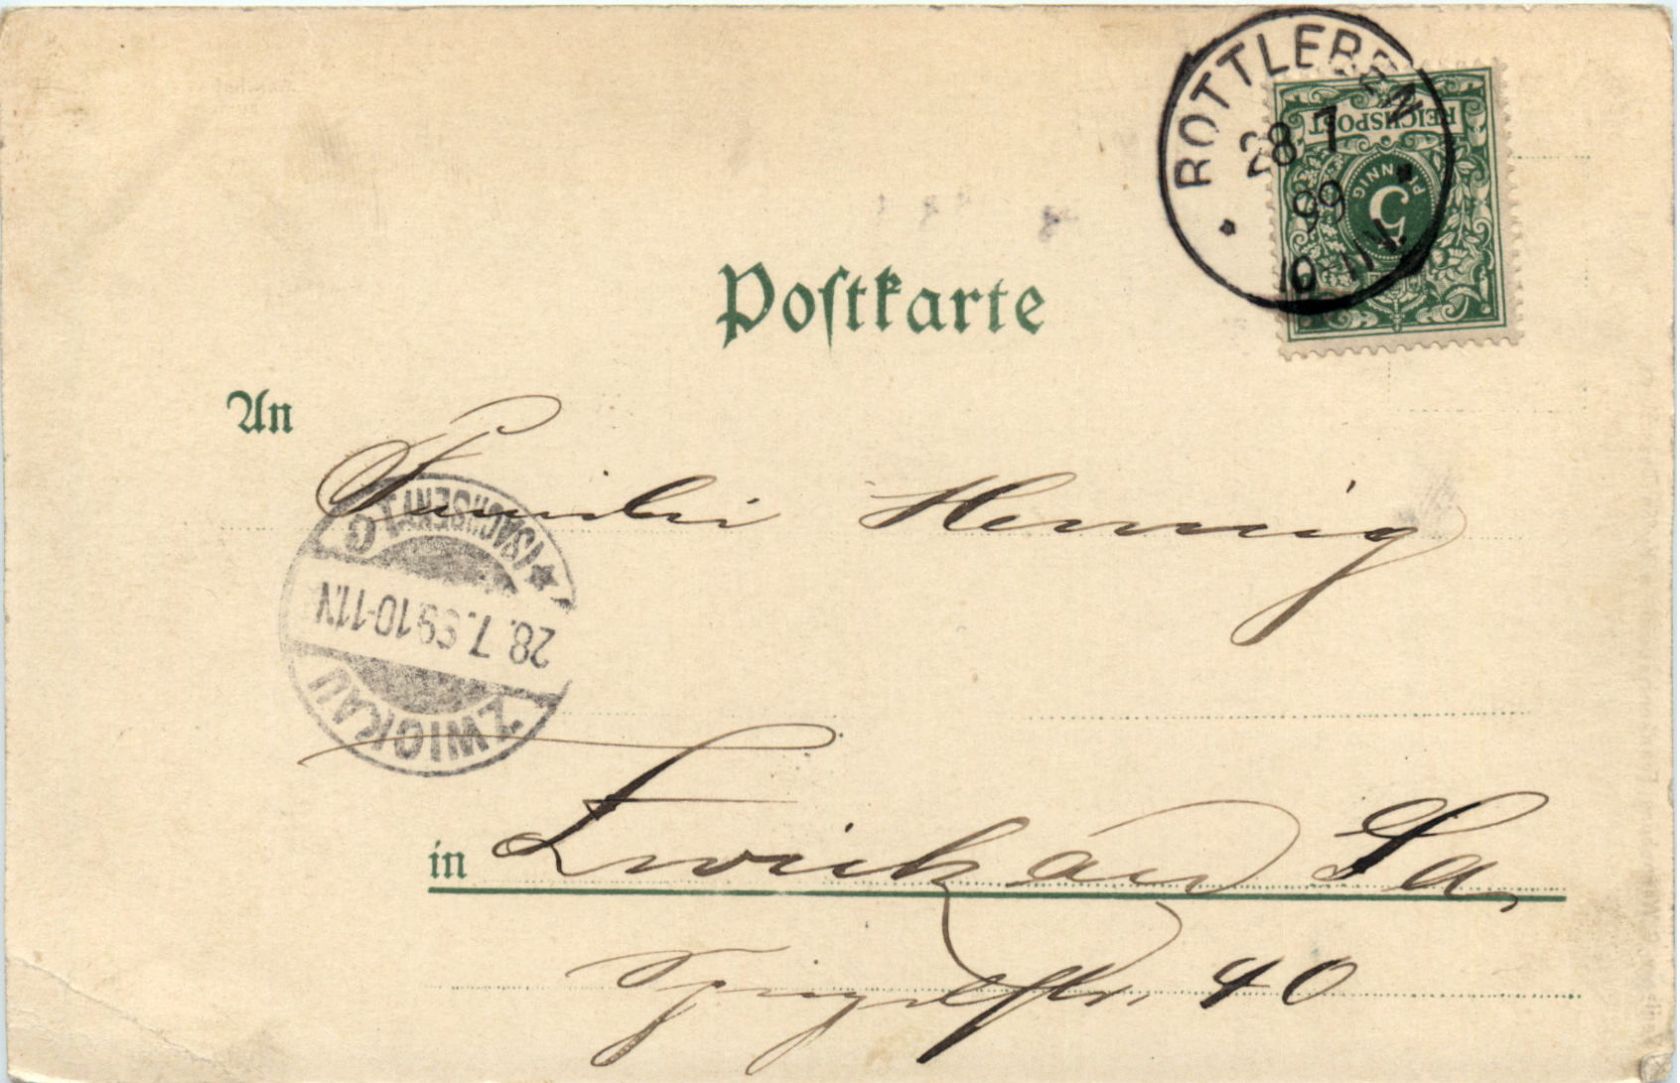 ROTTLEBEN
28 7
99
10-11V.
REICHSPOST
5
PFENNIG
Postkarte
An
Familie Hennig
ZWICKAU
28.7.99 10-11N
(SACHSEN) 1 G
in Zwickau Sa,
Spiegelstr. 40